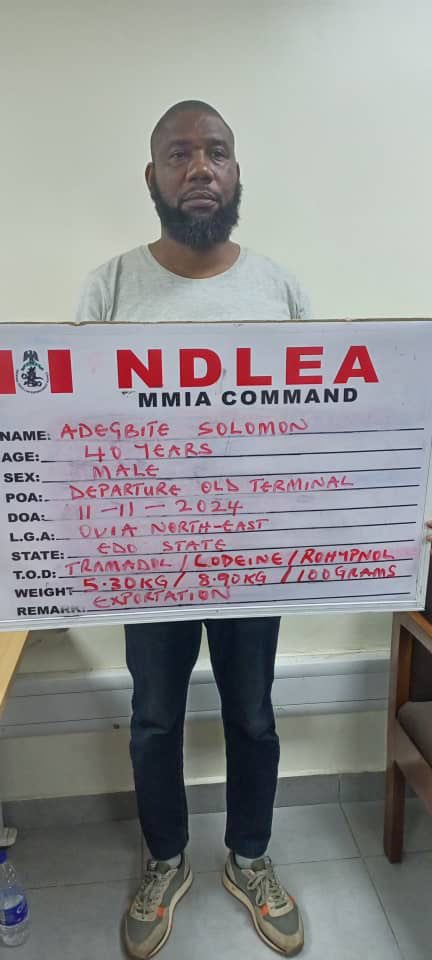 NDLEA
MMIA COMMAND
NAME: ADEGBITE SOLOMON
AGE: 40 YEARS
SEX: MALE
POA: DEPARTURE OLD TERMINAL
DOA: 11-11-2024
L.G.A: OVIA NORTH-EAST
STATE: EDO STATE
T.O.D: TRAMADOL/CODEINE/ROHYPNOL
WEIGHT 5.30KG/8.90KG/100GRAMS
REMARK: EXPORTATION